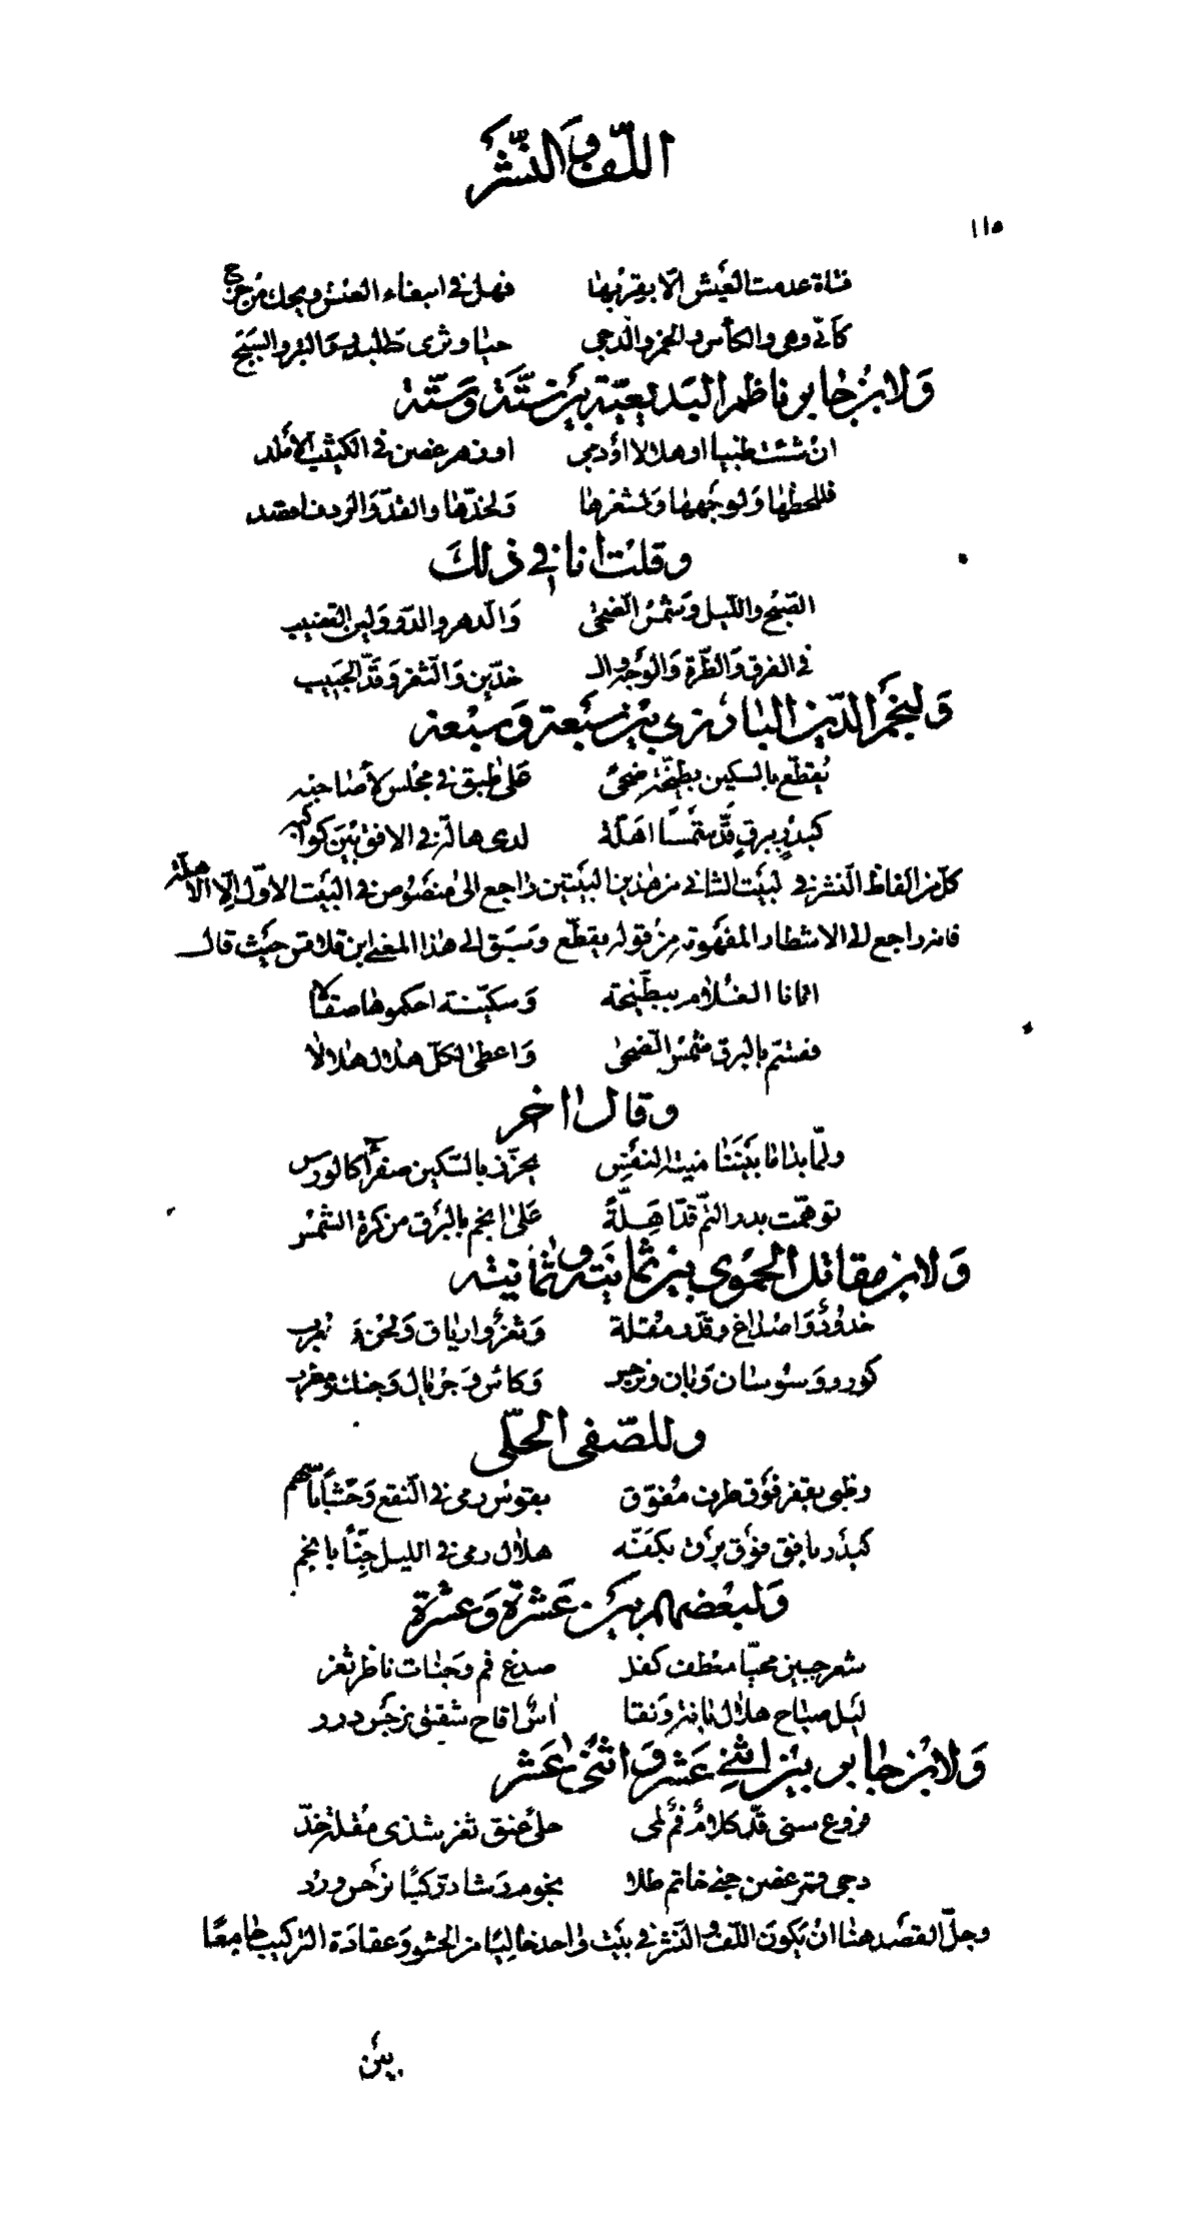 اللّف والنّشر
١١٥
فتاة عدمت العيش الّا بقربها فهل في ابتغاء العيش ويحك من حرج
كأنّي وهي والكأس والخمر والدّجى حيا وثرى
ولابن جابر ناظم البديعيّة بين ستّة وستّة
ان شئت ظبيا او هلالا او دجى او زهر غصن في الكثيب الأملد
فللحظها ولوجهها ولشعرها ولخدّها والقدّ والردف اقصد
وقلت انا في ذلك
الصّبح واللّيل وشمس الضّحى والدهر والدّر ولين القضيب
في الفرق والطّرة والوجه والـ خدّين والثغر وقدّ الحبيب
ولنجم الدّين البارزي بين سبعة وسبعة
يقطّع بالسكين بطّيخة ضحىً على طبق في مجلس لأصاحبه
كبدرٍ ببرقٍ قدّ شمسًا اهلّة لدى هالة في الافق بين كواكبه
كلّ من الفاظ النّشر في لبيت الثاني من هذين البيتين راجع الى منصوص في البيت الاوّل الّا الأهلّة
فانه راجع الى الاشطار المفهومة من قوله يقطّع وسبق الى هذا المعنى ابن قلاقس حيث قال
اتانا الغلام ببطّيخة وسكّينة احكموها صقالا
فقسّم بالبرق شمس الضحى واعطى لكلّ هلال هلالا
وقال اخر
ولمّا بدا ما بيننا منية النفس يحزّز بالسّكين صفراً كالورس
توهّمت بدر التمّ قدّ اهلّةً على انجم بالبرق من كرة الشّمس
ولابن مقاتل الحموي بين ثمانية وثمانية
خدود واصداغ وقدّ ومقلة وثغر وارياق ولحن ومعرب
كورد وسوسان وبان ونرجس وكاس وجريال وجنك ومطرب
وللصّفي الحلّي
وظبي بقفر فوق طرف مفوّق بقوس رمى في النّقع وحشًا بأسهم
كبدر بافق فوق برق بكفّه هلال رمى في الليل جنًّا بانجم
ولبعضهم بين عشرة وعشرة
شعر جبين محيّا معطف كفل صدغ فم وجنات ناظر ثغر
ليل صباح هلال بانة ونقا آس اقاح شقيق نرجس درر
ولابن جابر بين اثنى عشر واثنى عشر
فروع سنى قدّ كلام فم لمى حلى عنق ثغر شذى مقلة خدّ
دجى قمر غصن جنى خاتم طلا نجوم رشا درّ كبا نرجس ورد
وجلّ القصد هنا ان يكون اللّف والنّشر في بيت واحد خاليًا من الحشو وعقادة التركيب جامعًا
بين